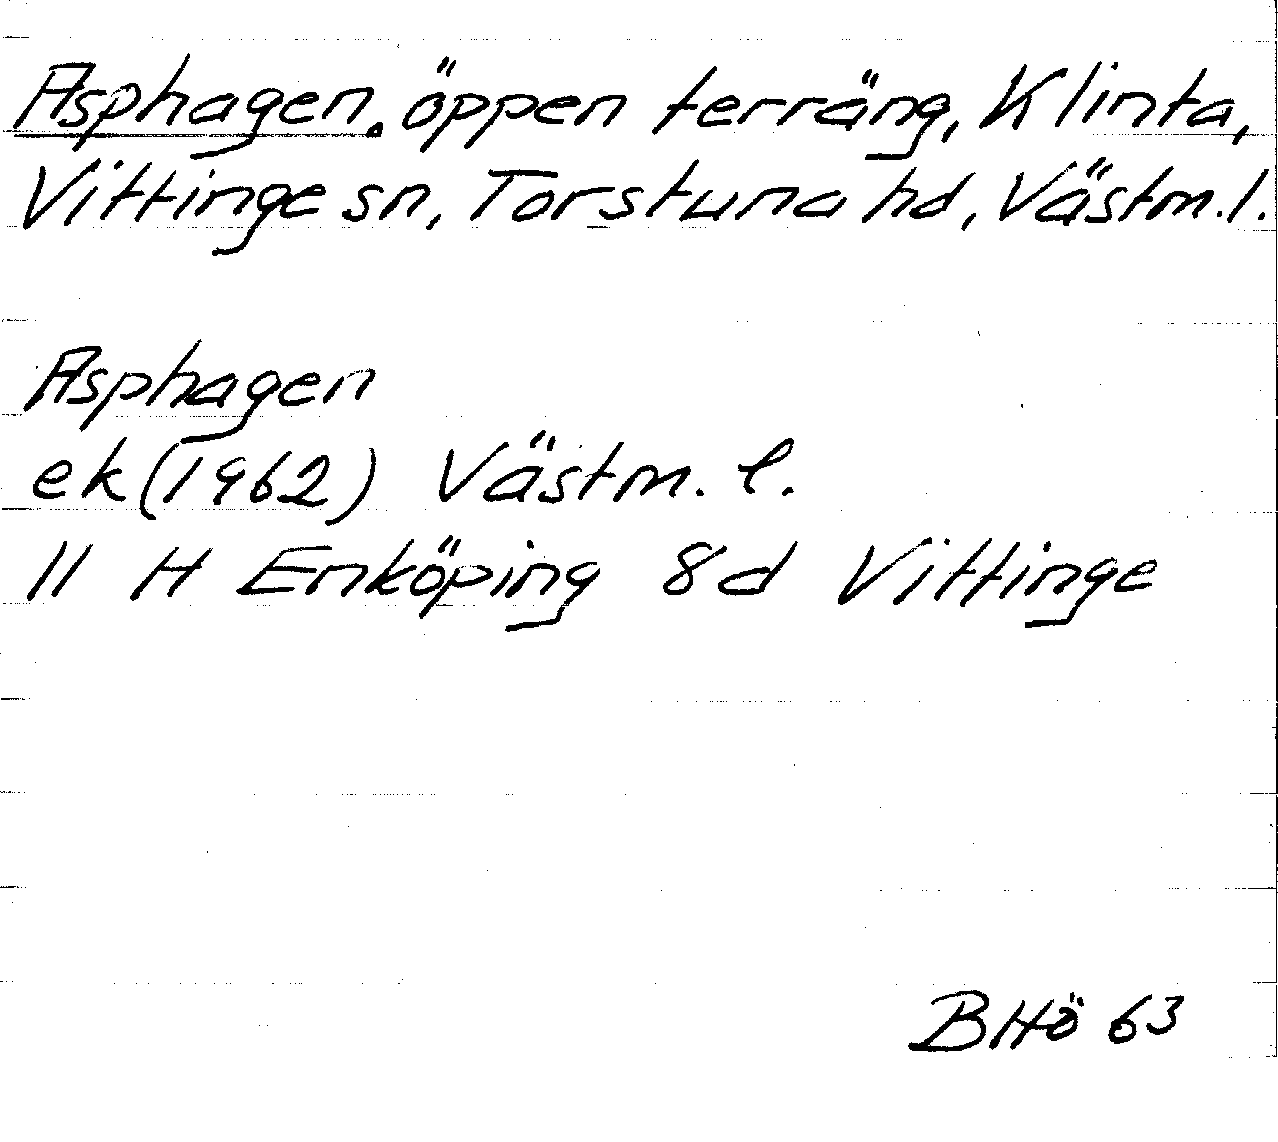 Asphagen. öppen terräng, Klinta,
Vittinge sn, Torstuna hd, Västm.l.
Asphagen
ek (1962) Västm. l.
11 H Enköping 8d Vittinge
BHö 63